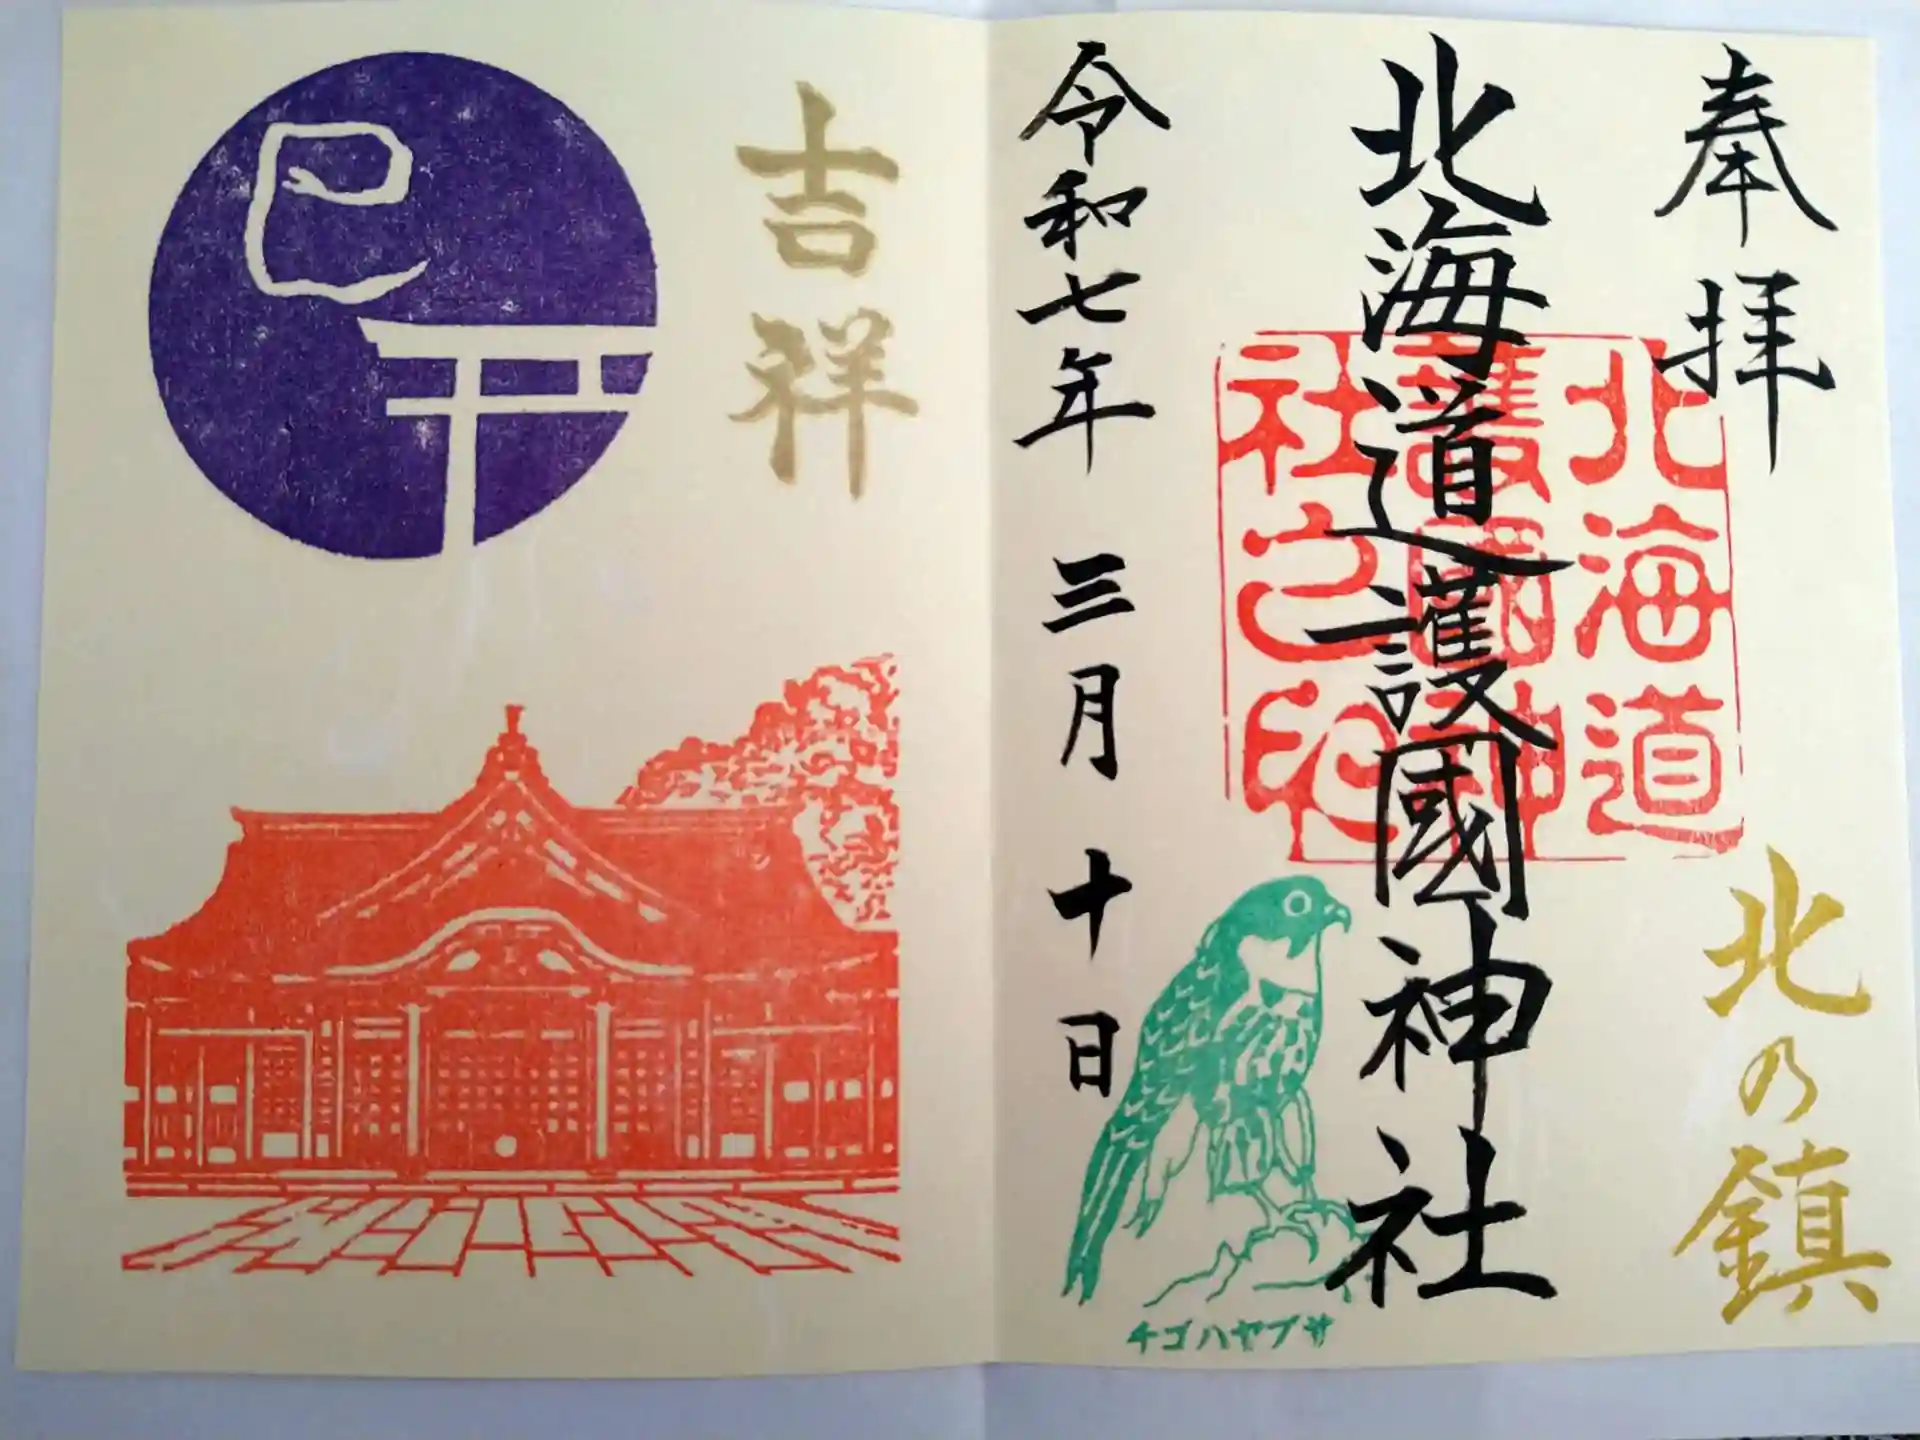 奉拝
北の鎮
北海道護國神社
北海道
護國神
社之印
チゴハヤブサ
令和七年 三月 十日
吉祥
巳